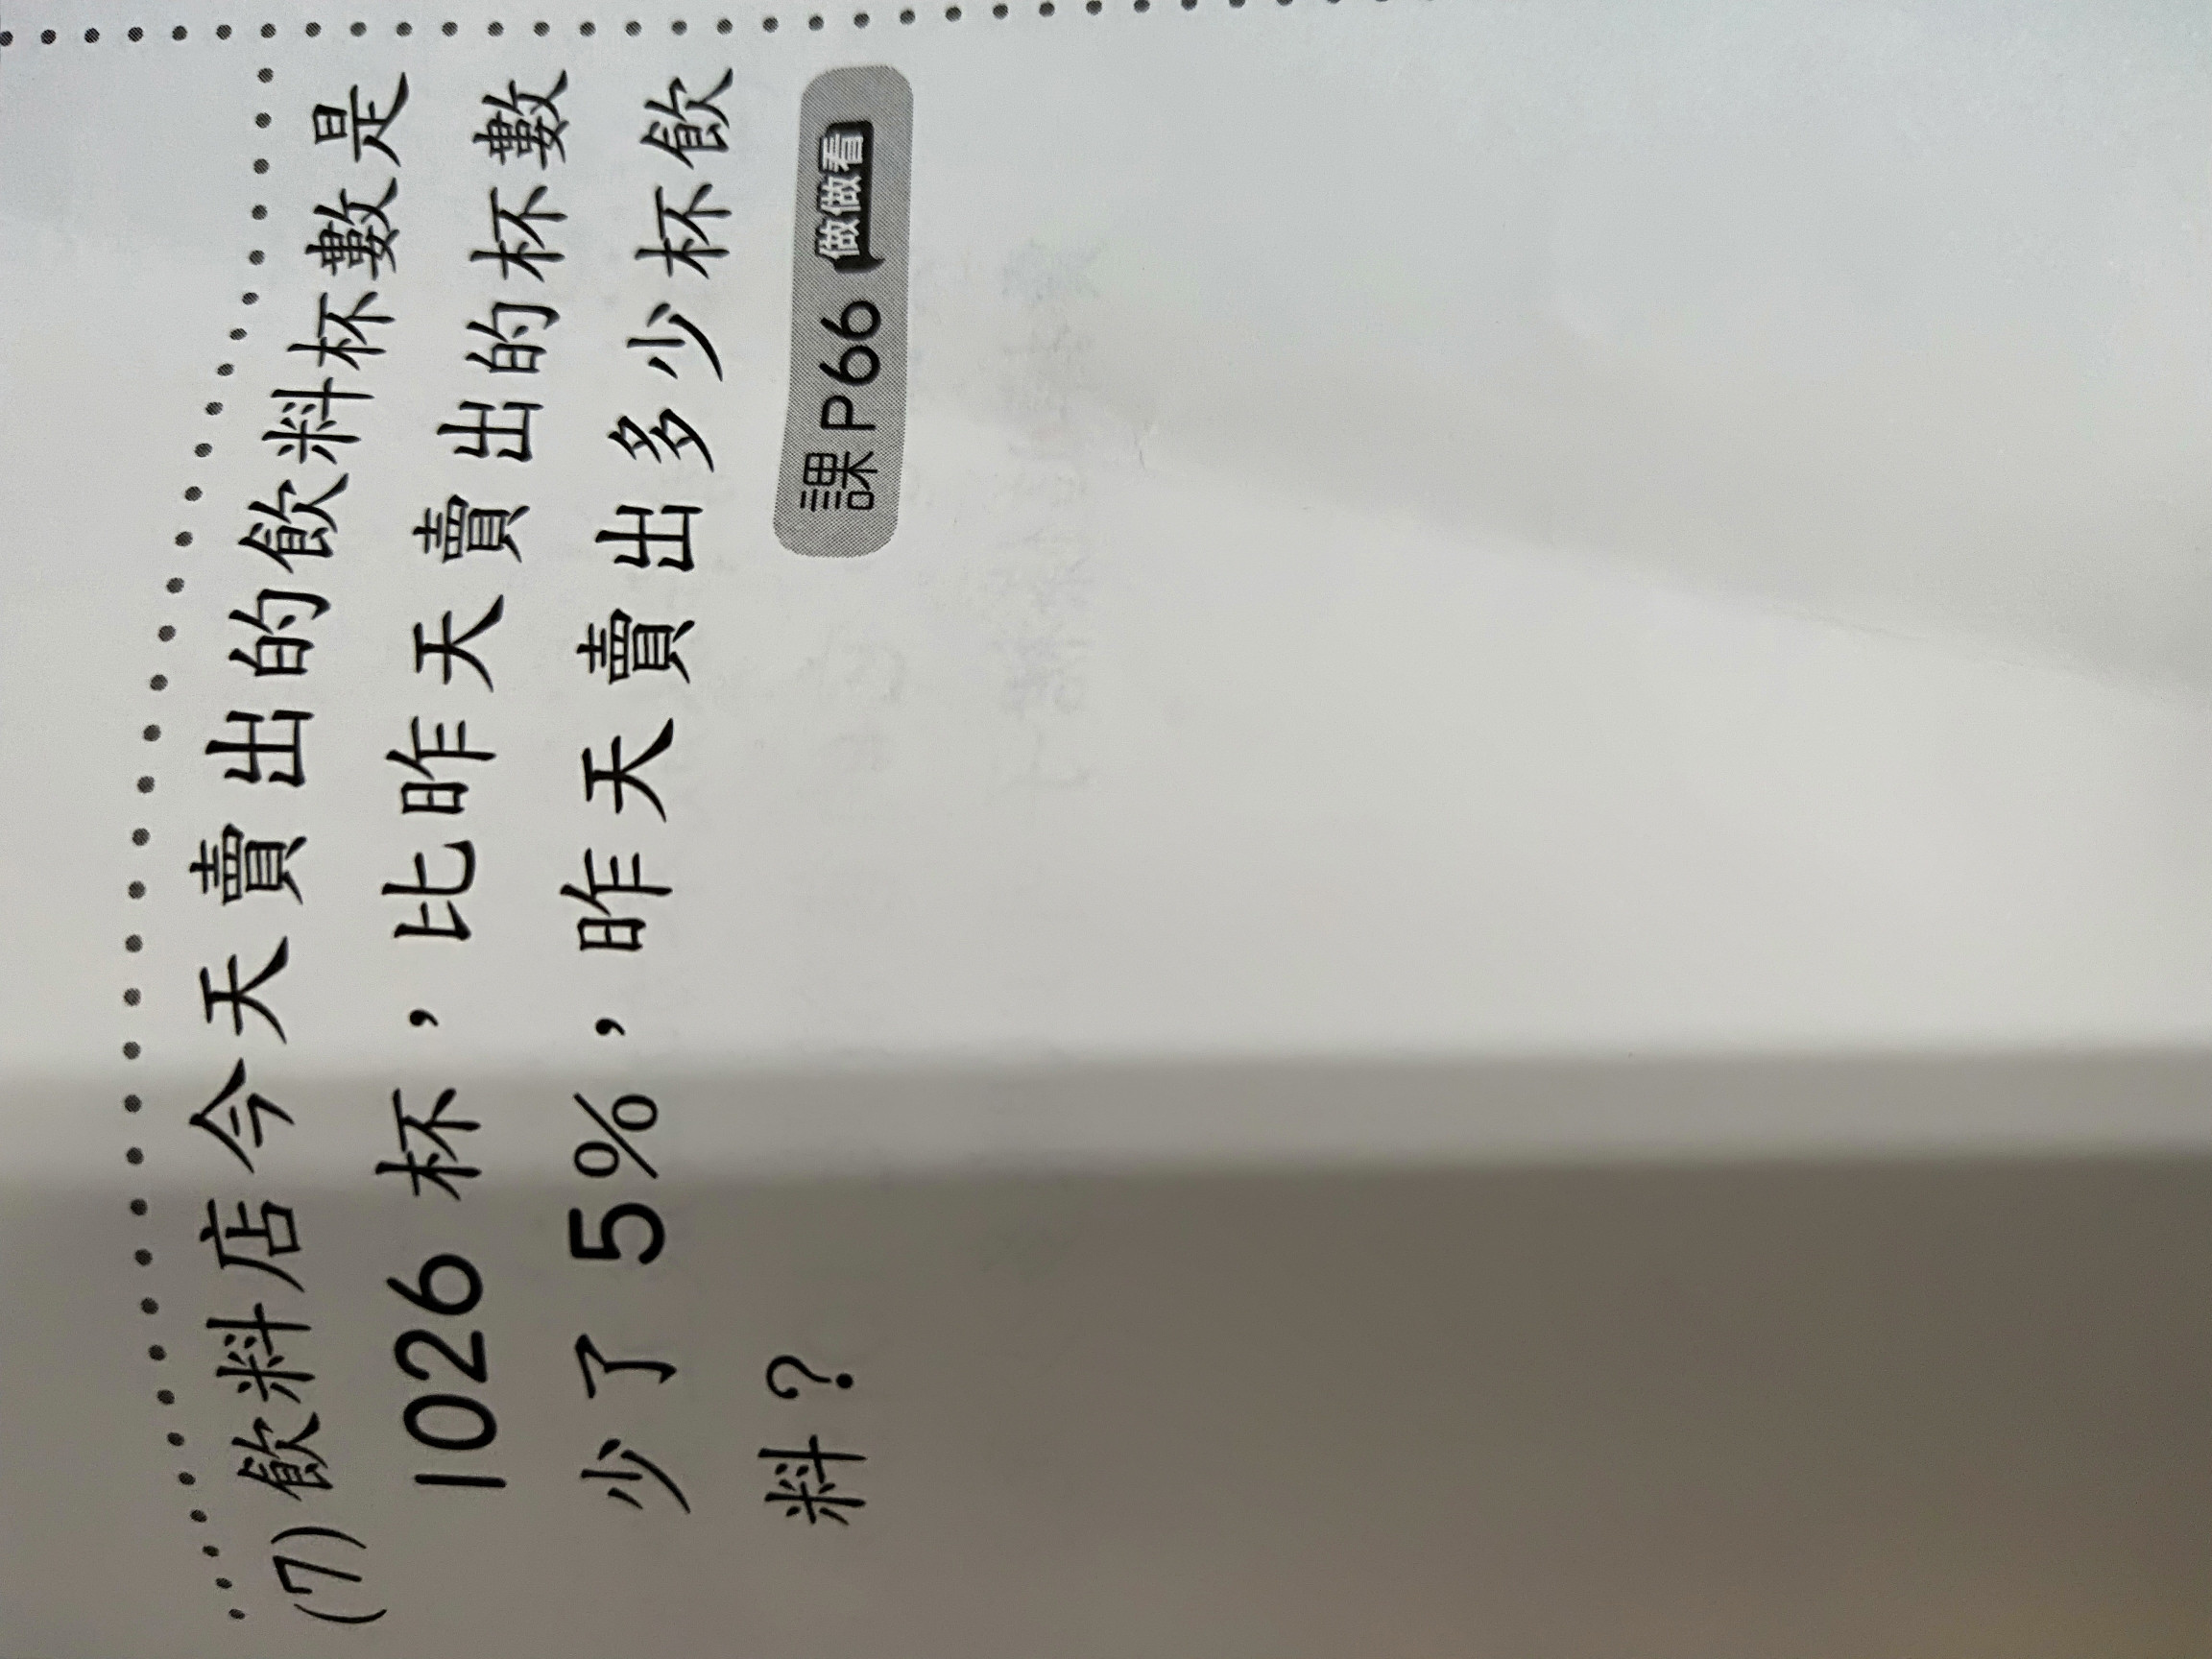 (7)飲料店今天賣出的飲料杯數是
1026 杯，比昨天賣出的杯數
少了 5%，昨天賣出多少杯飲
料？
課 P66 做做看